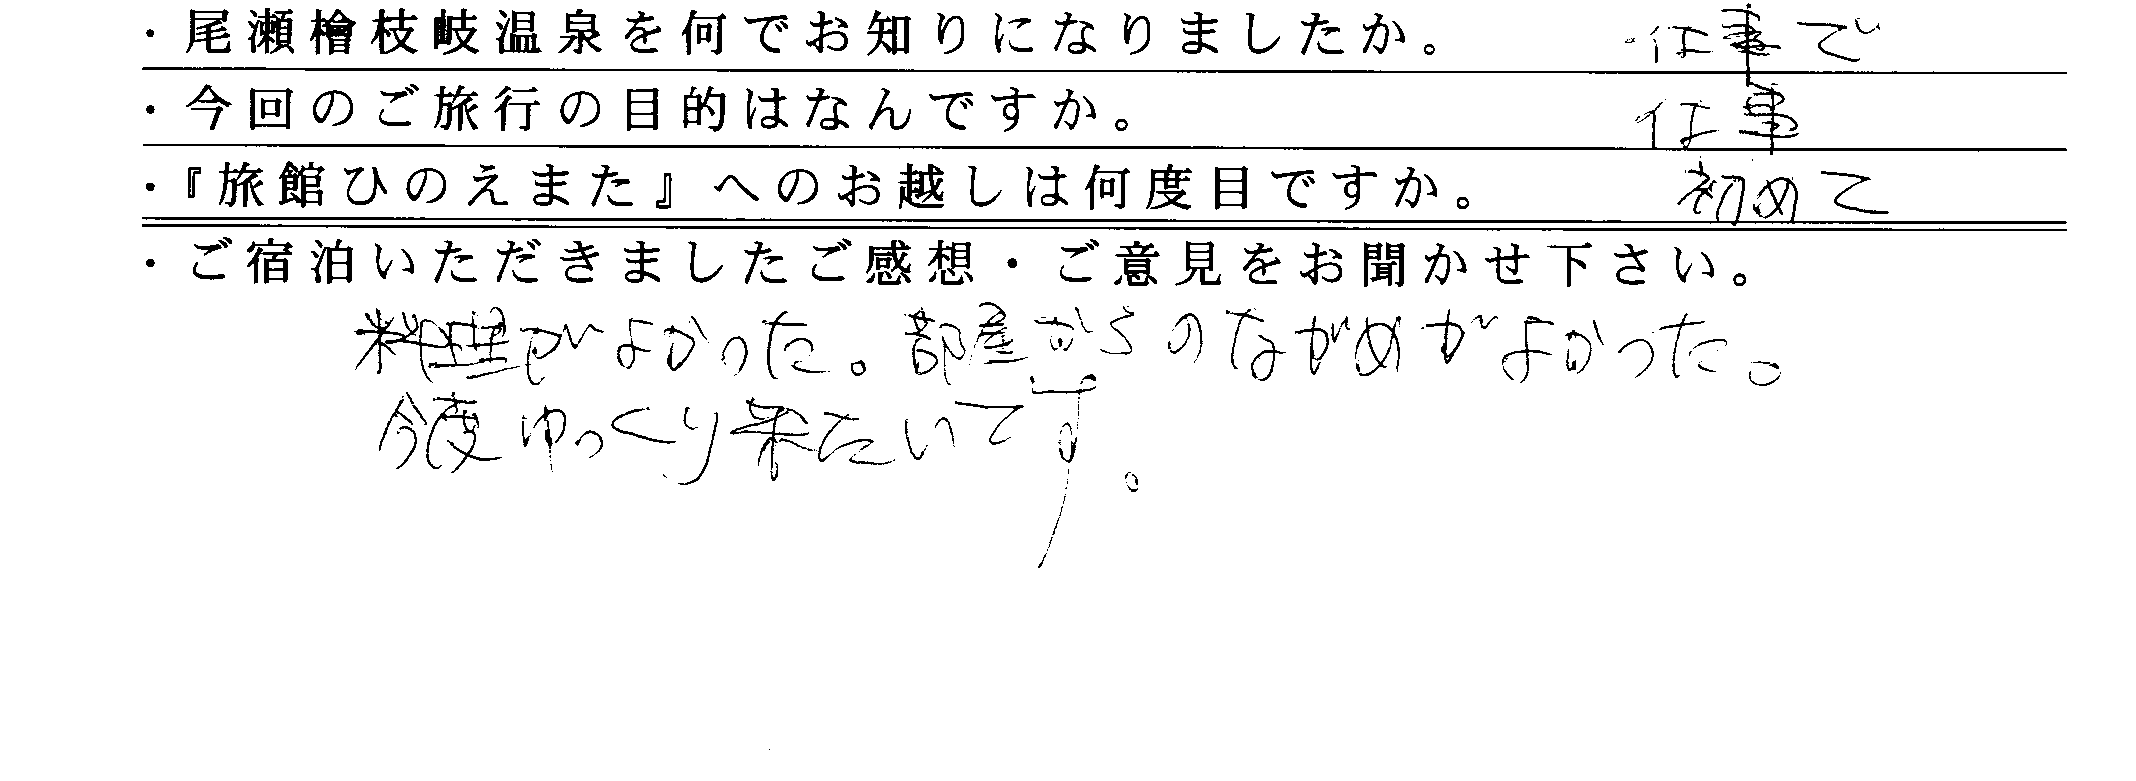 ・尾瀬檜枝岐温泉を何でお知りになりましたか。 仕事で
・今回のご旅行の目的はなんですか。 仕事
・『旅館ひのえまた』へのお越しは何度目ですか。 初めて
・ご宿泊いただきましたご感想・ご意見をお聞かせ下さい。
料理がよかった。部屋からのながめがよかった。
今度ゆっくり来たいです。